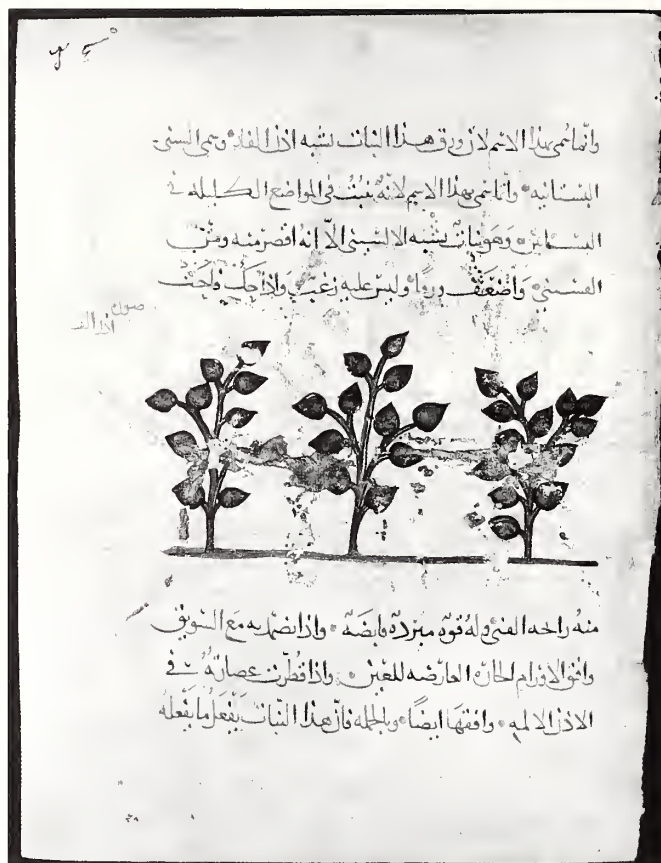 وانما سمى بهذا الاسم لان ورق هذا النبات يشبه اذن الفار وسمى
البستانيه وانما سمى بهذا الاسم لانه ينبت فى المواضع الظليلة فى
البساتين وهو نبات يشبه الا انه اقصر منه ومن
واضعف ورقا وليس عليه زغب واذا فاحت
صورة
اذن الفار
منه رائحه القثى وله قوة مبردة قابضة واذا تضمد به مع السويق
وافق الاورام الحارة العارضه للعين واذا قطرت عصارته فى
الاذن الالمه وافقها ايضا وبالجمله فان هذا النبات يفعل ما يفعله